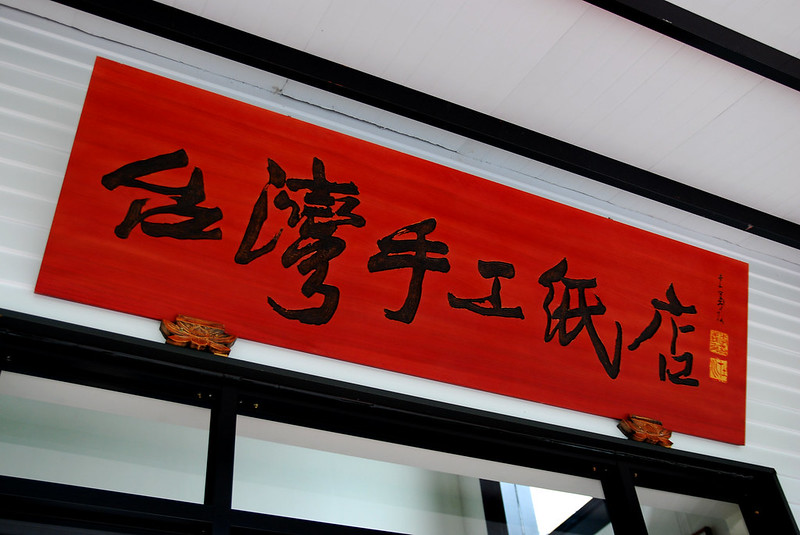 台灣手工紙店